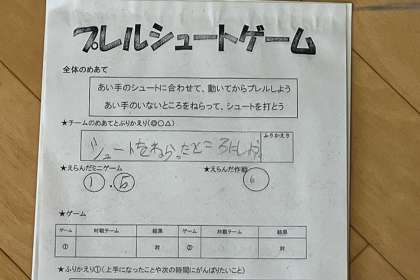 プレルシュートゲーム
全体のめあて
あい手のシュートに合わせて、動いてからプレルしよう
あい手のいないところをねらって、シュートを打とう
★チームのめあてとふりかえり(◎○△)
ふりかえり
シュートをねらったところにしよう
★えらんだミニゲーム
★えらんだ作戦
① . ⑤
⑥
★ゲーム
ゲーム 対戦チーム 結果 ゲーム 対戦チーム 結果
① 対 ② 対
★ふりかえり①(上手になったことや次の時間にがんばりたいこと)